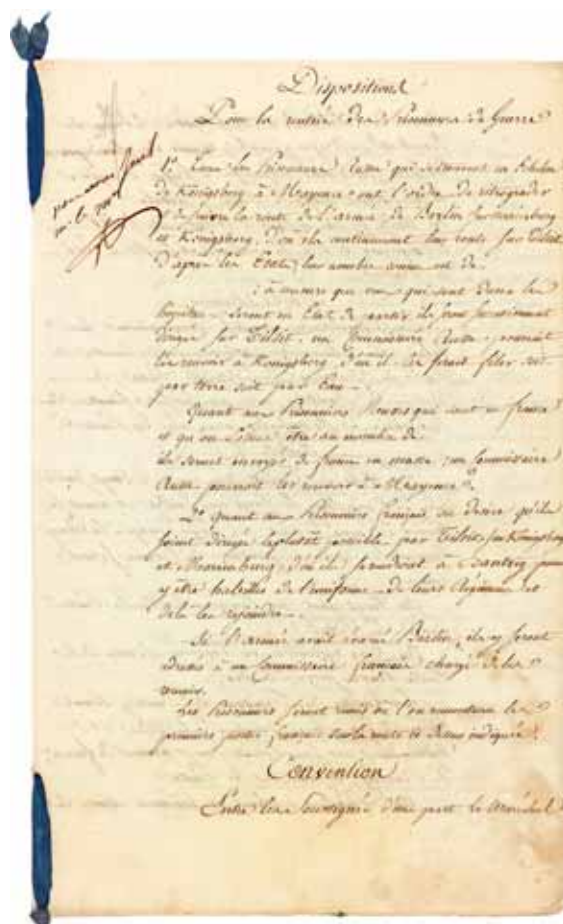 Dispositions
Pour la rentrée des Prisonniers de Guerre
1° Tous les Prisonniers Russes qui se trouvent en Echelon
de Königsberg à Mayence ont l'ordre de rétrograder
de suivre la route de l'armée de Berlin sur Marienburg
et Königsberg, d'où ils continueront leur route sur Tilsit
d'après les Etats, leur nombre est de
à mesure que ceux qui sont dans les
hopitaux seront en Etat de partir ils seront
dirigés sur Tilsit, un Commissaire Russe pourrait
les recevoir à Königsberg, d'où il les ferait filer soit
par terre soit par Eau.
Quant aux Prisonniers Russes qui sont en france
et qu'on être au nombre de
ils seront envoyés de france en masse, un Commissaire
Russe pourrait les recevoir à Mayence
2° quant aux Prisonniers français on desire qu'ils
soient dirigés le plutôt possible par Tilsit sur Königsberg
et Marienburg d'où ils se rendront à Dantzig pour
y être habillés de l'uniforme de leurs Régimens et
delà les rejoindre.
Si l'armée avait évacué Berlin, ils y seront
à un Commissaire français chargé de les
réunir.
Les Prisonniers seront remis où l'on rencontrera les
premiers postes français sur la route ci dessus indiquée.
Convention
Entre les Soussignés d'une part le Maréchal